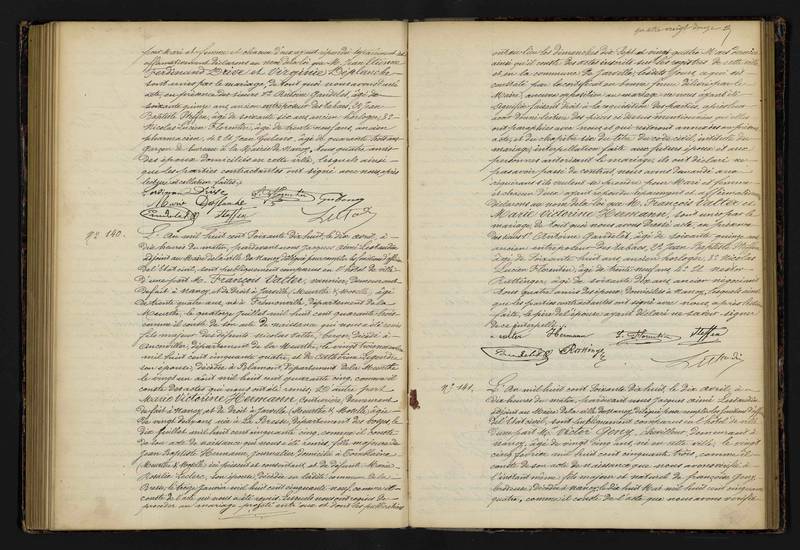 quatre vingt douze
pour Mari et femme et chacun d'eux ayant répondu séparément et
affirmativement, déclarons au nom de la loi que M. Jean Etienne
Ferdinand Drive et Virginie Deplanche
sont unis par le mariage, de tout quoi nous avons dressé
acte, en présence des sieurs Gaudelet, âgé de
soixante quinze ans ancien entreposeur des tabacs, 2º Jean
Baptiste Steffen, âgé de soixante six ans ancien horloger, 3º
Nicolas Lucien Florentin, âgé de trente neuf ans, ancien
pharmacien, et 4º Jean
garçon de bureau à la Mairie de Nancy, tous quatre amis
des époux domiciliés en cette ville, lesquels ainsi
que les parties contractantes ont signé avec nous après
lecture et collation faites.
Marie Deplanche
Gaudelet Steffen
Nº 140. L'An mil huit cent soixante dix huit, le dix avril, à
dix heures du matin, pardevant nous Jacques Aimé
adjoint au Maire de la ville de Nancy délégué pour remplir les fonctions d'officier
de l'Etat civil, sont publiquement comparus en l'hôtel de ville
D'une part M. François Valter, vannier, demeurant
de fait à Nancy et de droit à Jarville (Meurthe & Moselle), âgé
de trente quatre ans, né à Frémonville, département de la
Meurthe, le quatorze juillet mil huit cent quarante trois
comme il conste de son acte de naissance qui nous a été remis
fils majeur des défunts Nicolas Valter, berger, décédé à
Ancerviller, département de la Meurthe, le vingt trois
mil huit cent cinquante quatre, et de Catherine
son épouse, décédée à Blâmont, département de la Meurthe
le vingt un août mil huit cent quarante cinq, comme il
conste des actes qui nous ont été remis, Et d'autre part
Marie Victorine Hermann, couturière, demeurant
de fait à Nancy et de droit à Jarville (Meurthe & Moselle) âgée
de vingt deux ans née à La Bresse, département des Vosges, le
dix juillet mil huit cent cinquante cinq, comme il conste
de son acte de naissance qui nous a été remis, fille majeure de
Jean Baptiste Hermann, journalier, domicilié à Tomblaine
(Meurthe & Moselle) ici présent et consentant, et de défunte Marie
Rosalie Leclerc, son épouse, décédée en ladite commune de la
Bresse, le treize janvier mil huit cent cinquante neuf, comme il
conste de l'acte qui nous a été remis. Lesquels nous ont requis de
procéder au mariage projeté entre eux et dont les publications
ont eu lieu les dimanches dix sept et vingt quatre Mars dernier
ainsi qu'il conste des actes inscrits sur les registres de cette ville
et en la commune de Jarville, lesdits jours, ce qui est
constaté par le certificat en bonne forme délivré par le
Maire; aucune opposition au mariage ne nous ayant été
signifiée faisant droit à la réquisition des parties, après leur
avoir donné lecture des pièces ci dessus mentionnées qui elles
ont paraphées avec nous et qui resteront annexées au présent
acte, et du chapitre six du titre du code civil, intitulé du
mariage, interpellation faite aux futurs époux et aux
personnes autorisant le mariage, ils ont déclaré ne
pas avoir passé de contrat, nous avons demandé aux
requérants s'ils veulent se prendre pour Mari et femme
et chacun d'eux ayant répondu séparément et affirmativement
déclarons au nom de la loi que M. François Valter et
Marie Victorine Hermann, sont unis par le
mariage, de tout quoi nous avons dressé acte, en présence
des sieurs Gaudelet, âgé de soixante quinze ans
ancien entreposeur des tabacs, 2º Jean Baptiste Steffen
âgé de soixante huit ans ancien horloger, 3º Nicolas
Lucien Florentin, âgé de trente neuf ans, & 4º
âgé de soixante dix ans ancien négociant
tous quatre amis des époux, domiciliés à Nancy, lesquels ainsi
que les parties contractantes ont signé avec nous, après lecture
faite, le père de l'épouse ayant déclaré ne savoir signer
de ce interpellé.
valter Hermann Steffen
Gaudelet
Nº 141. L'An mil huit cent soixante dix huit, le dix avril, à
dix heures du matin, pardevant nous Jacques Aimé
adjoint au Maire de la ville de Nancy délégué pour remplir les fonctions d'officier
de l'Etat civil, sont publiquement comparus en l'hôtel de ville
D'une part M. demeurant à
Nancy, âgé de vingt cinq ans, né en cette ville, le vingt
cinq février mil huit cent cinquante trois, comme il
conste de son acte de naissance que nous avons vérifié à
l'instant même fils majeur et naturel de Françoise
décédée à Nancy, le dix huit Mai mil huit cent cinquante
quatre, comme il conste de l'acte que nous avons vérifié